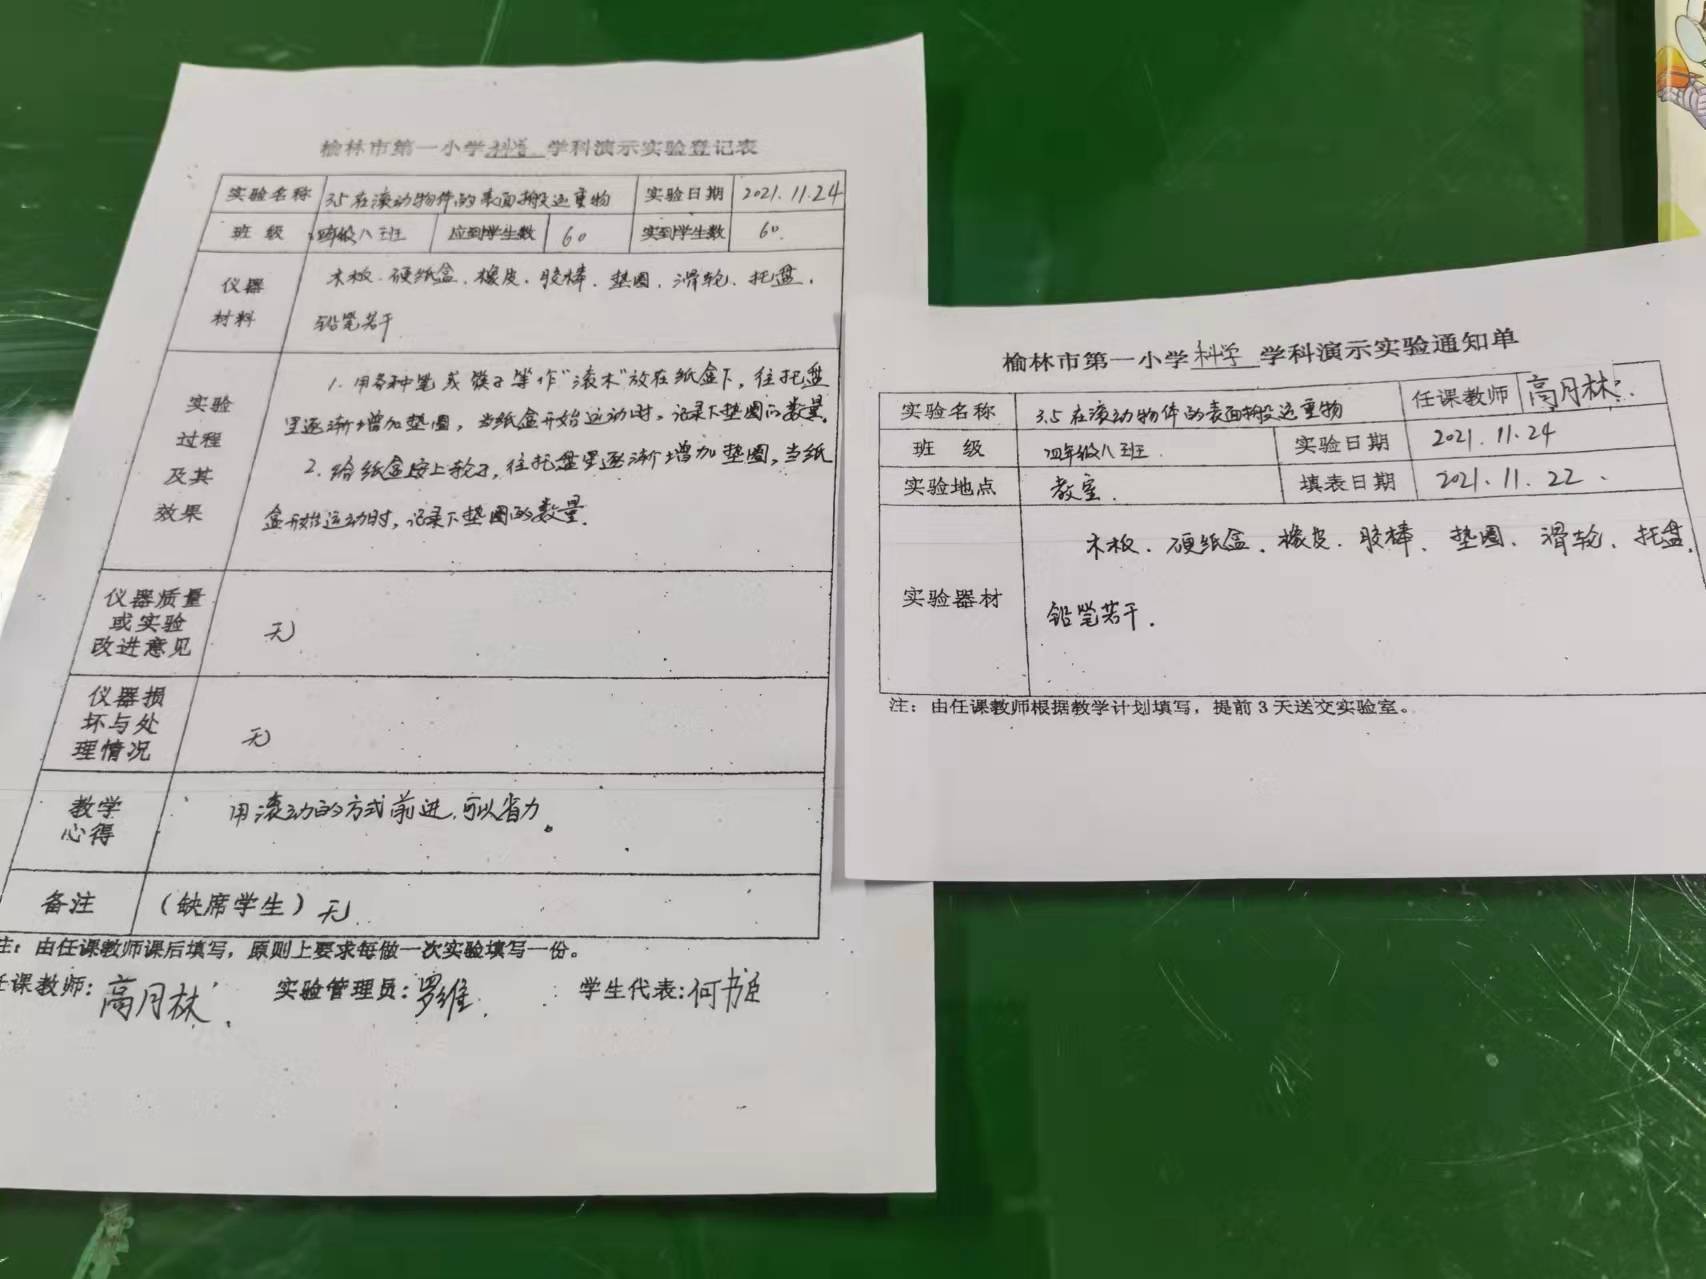 榆林市第一小学科学学科演示实验登记表
实验名称 3.5在滚动物体的表面搬运重物 实验日期 2021.11.24
班级 四年级八班 应到学生数 60 实到学生数 60.
仪器材料 木板、硬纸盒、橡皮、胶棒、垫圈、滑轮、托盘、
铅笔若干
实验过程及其效果 1.用各种笔或筷子等作“滚木”放在纸盒下，往托盘
里逐渐增加垫圈，当纸盒开始运动时，记录下垫圈的数量.
2.给纸盒安上轮子，往托盘里逐渐增加垫圈，当纸
盒开始运动时，记录下垫圈的数量.
仪器质量或实验改进意见 无
仪器损坏与处理情况 无
教学心得 用滚动的方式前进，可以省力。
备注 （缺席学生）无
注：由任课教师课后填写，原则上要求每做一次实验填写一份。
任课教师：高月林 实验管理员：罗维 学生代表：何书臣
榆林市第一小学科学学科演示实验通知单
实验名称 3.5在滚动物体的表面搬运重物 任课教师 高月林
班级 四年级八班. 实验日期 2021.11.24
实验地点 教室. 填表日期 2021.11.22.
实验器材 木板、硬纸盒、橡皮、胶棒、垫圈、滑轮、托盘、
铅笔若干.
注：由任课教师根据教学计划填写，提前3天送交实验室。